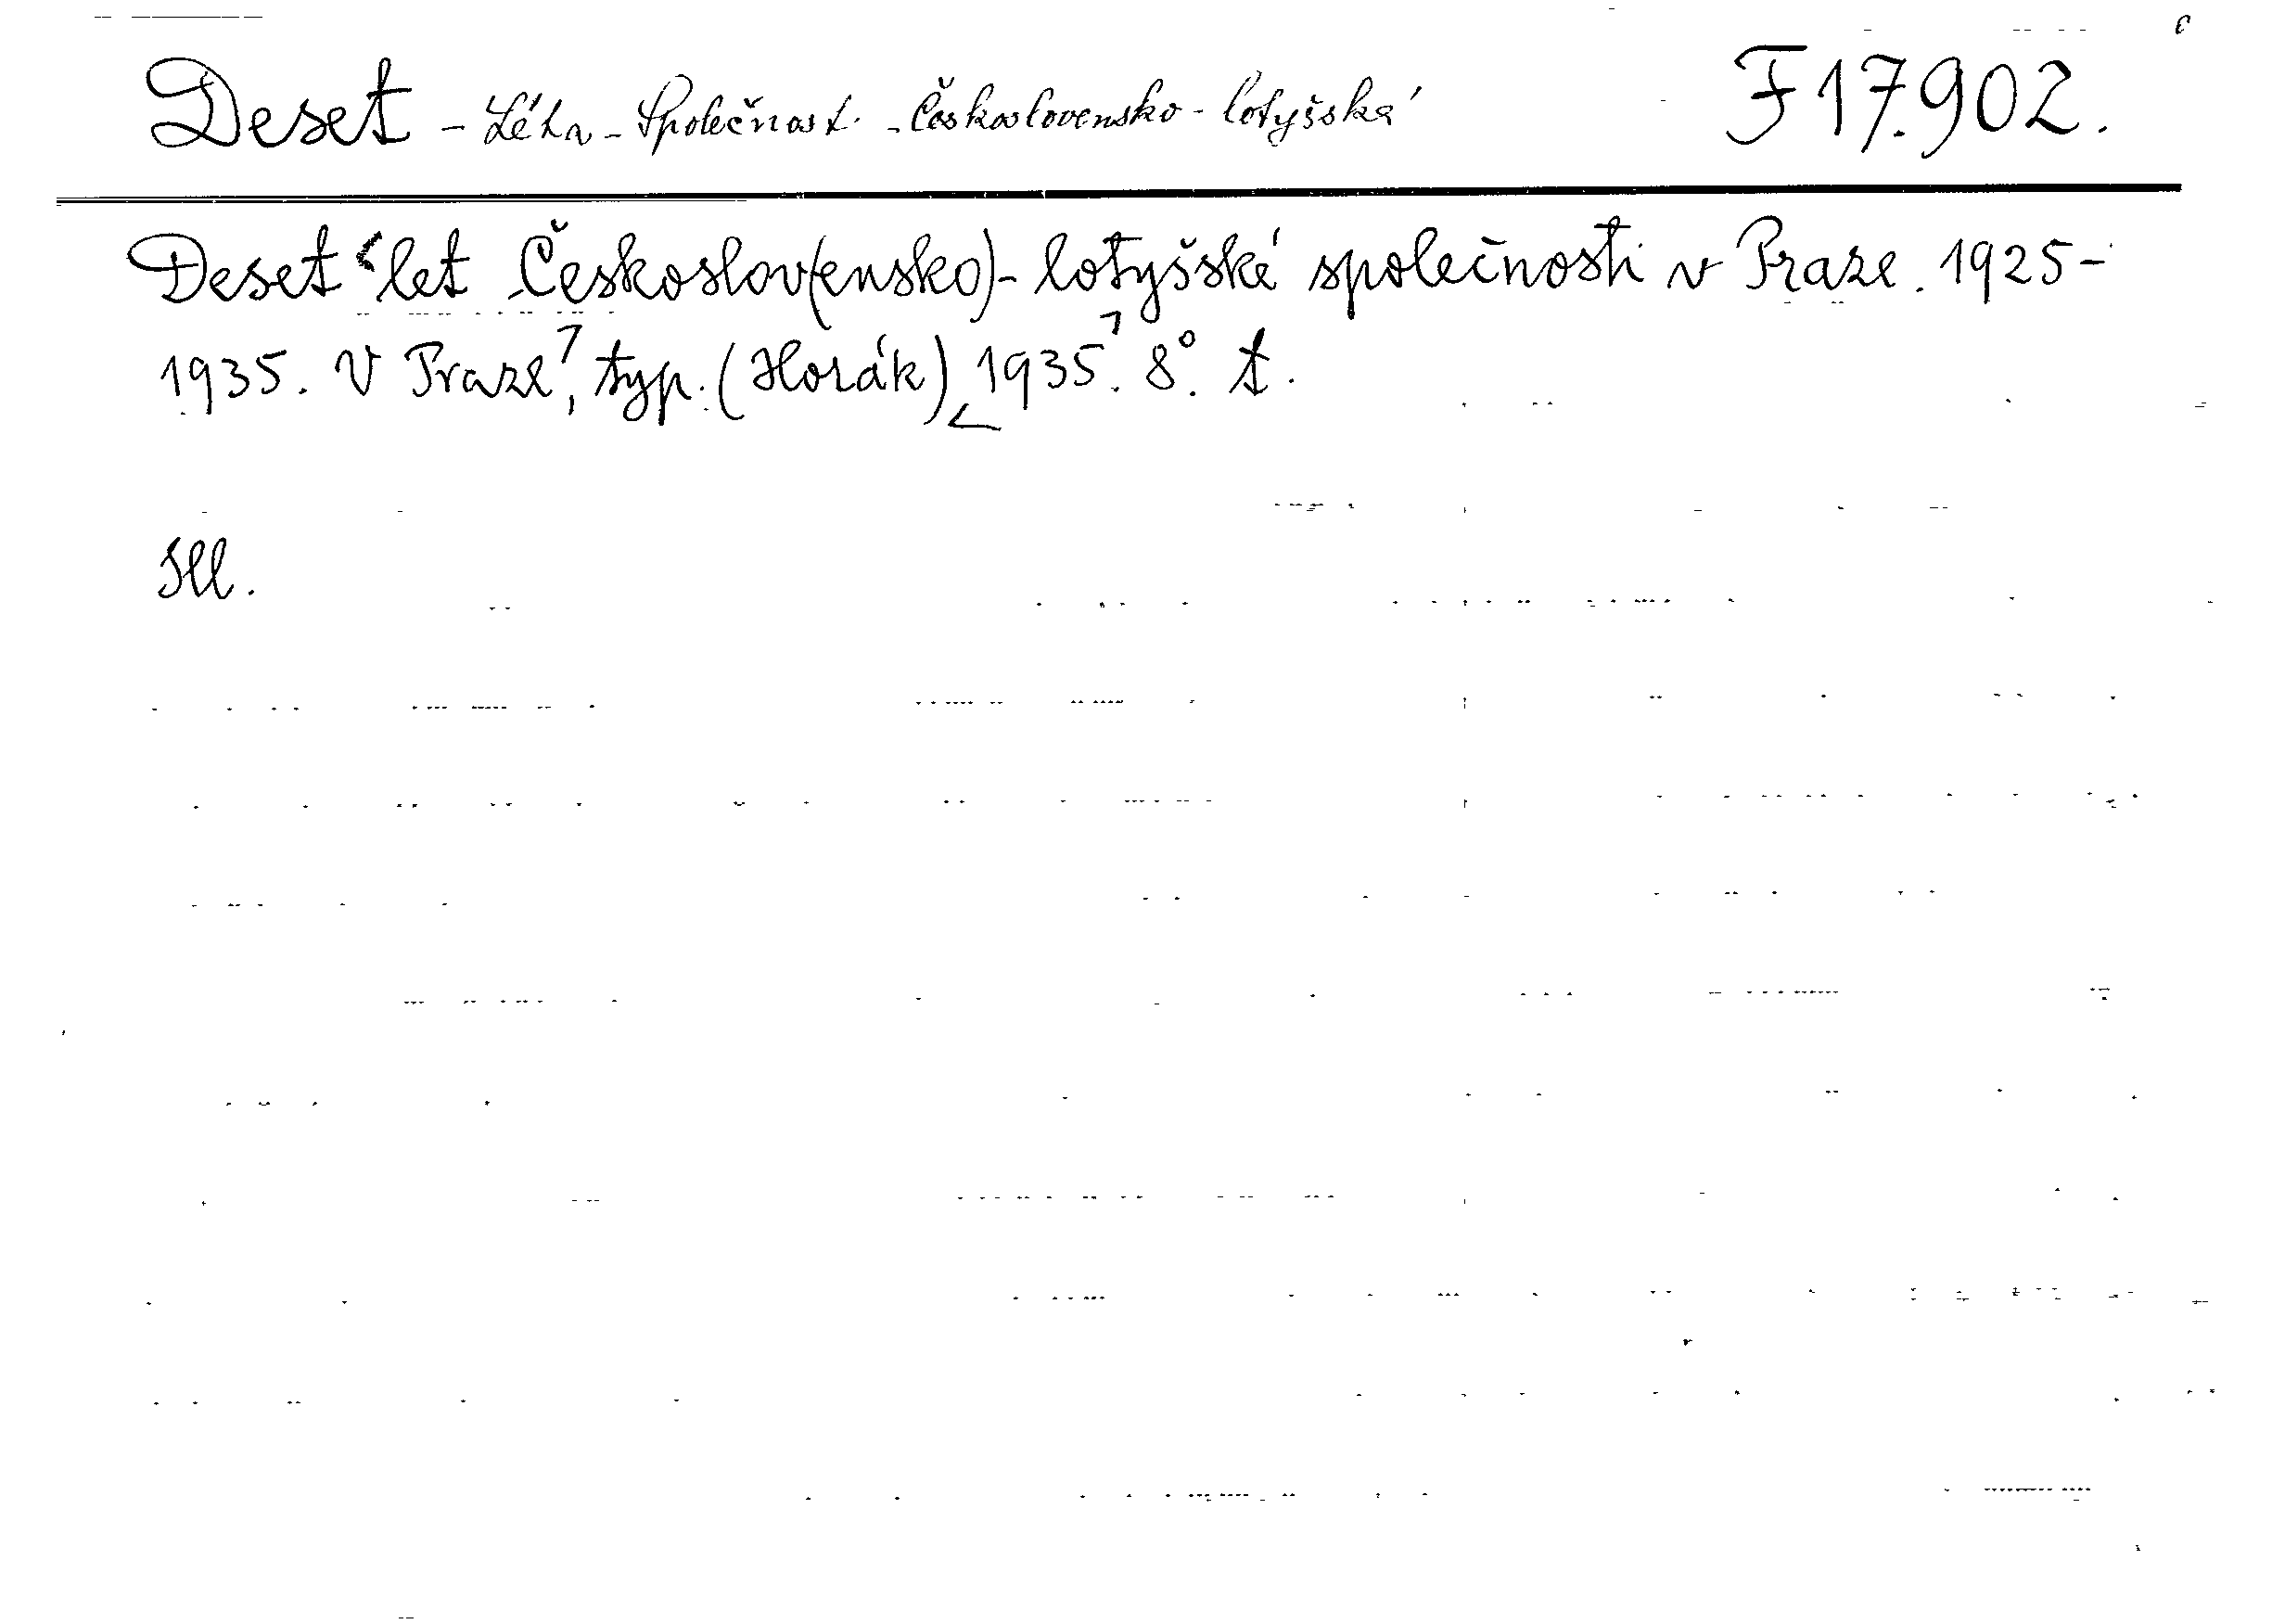 Deset - Léta - Společnost - Československo - lotyšská F 17.902.
Deset let Českoslov(ensko)- lotyšské společnosti v Praze. 1925-
1935. V Praze, typ. (Horák) 1935. 8°. t.
Ill.